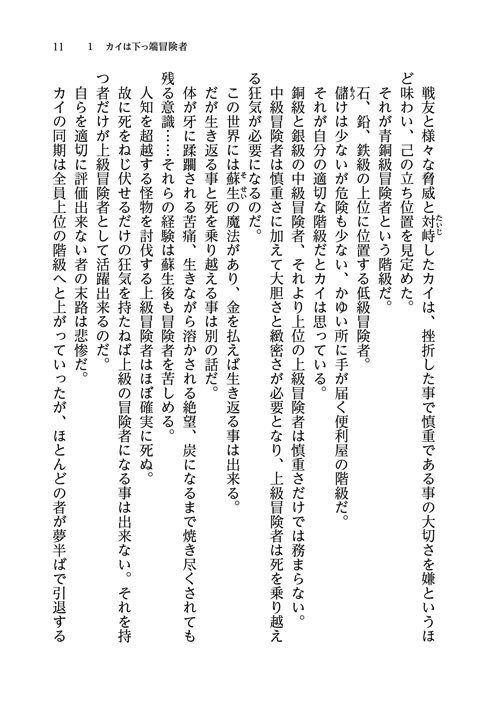 11　1　カイは下っ端冒険者
戦友と様々な脅威と対峙したカイは、挫折した事で慎重である事の大切さを嫌というほ
ど味わい、己の立ち位置を見定めた。
それが青銅級冒険者という階級だ。
石、鉛、鉄級の上位に位置する低級冒険者。
儲けは少ないが危険も少ない、かゆい所に手が届く便利屋の階級だ。
それが自分の適切な階級だとカイは思っている。
銅級と銀級の中級冒険者、それより上位の上級冒険者は慎重さだけでは務まらない。
中級冒険者は慎重さに加えて大胆さと緻密さが必要となり、上級冒険者は死を乗り越え
る狂気が必要になるのだ。
この世界には蘇生の魔法があり、金を払えば生き返る事は出来る。
だが生き返る事と死を乗り越える事は別の話だ。
体が牙に蹂躙される苦痛、生きながら溶かされる絶望、炭になるまで焼き尽くされても
残る意識……それらの経験は蘇生後も冒険者を苦しめる。
人知を超越する怪物を討伐する上級冒険者はほぼ確実に死ぬ。
故に死をねじ伏せるだけの狂気を持たねば上級の冒険者になる事は出来ない。それを持
つ者だけが上級冒険者として活躍出来るのだ。
自らを適切に評価出来ない者の末路は悲惨だ。
カイの同期は全員上位の階級へと上がっていったが、ほとんどの者が夢半ばで引退する